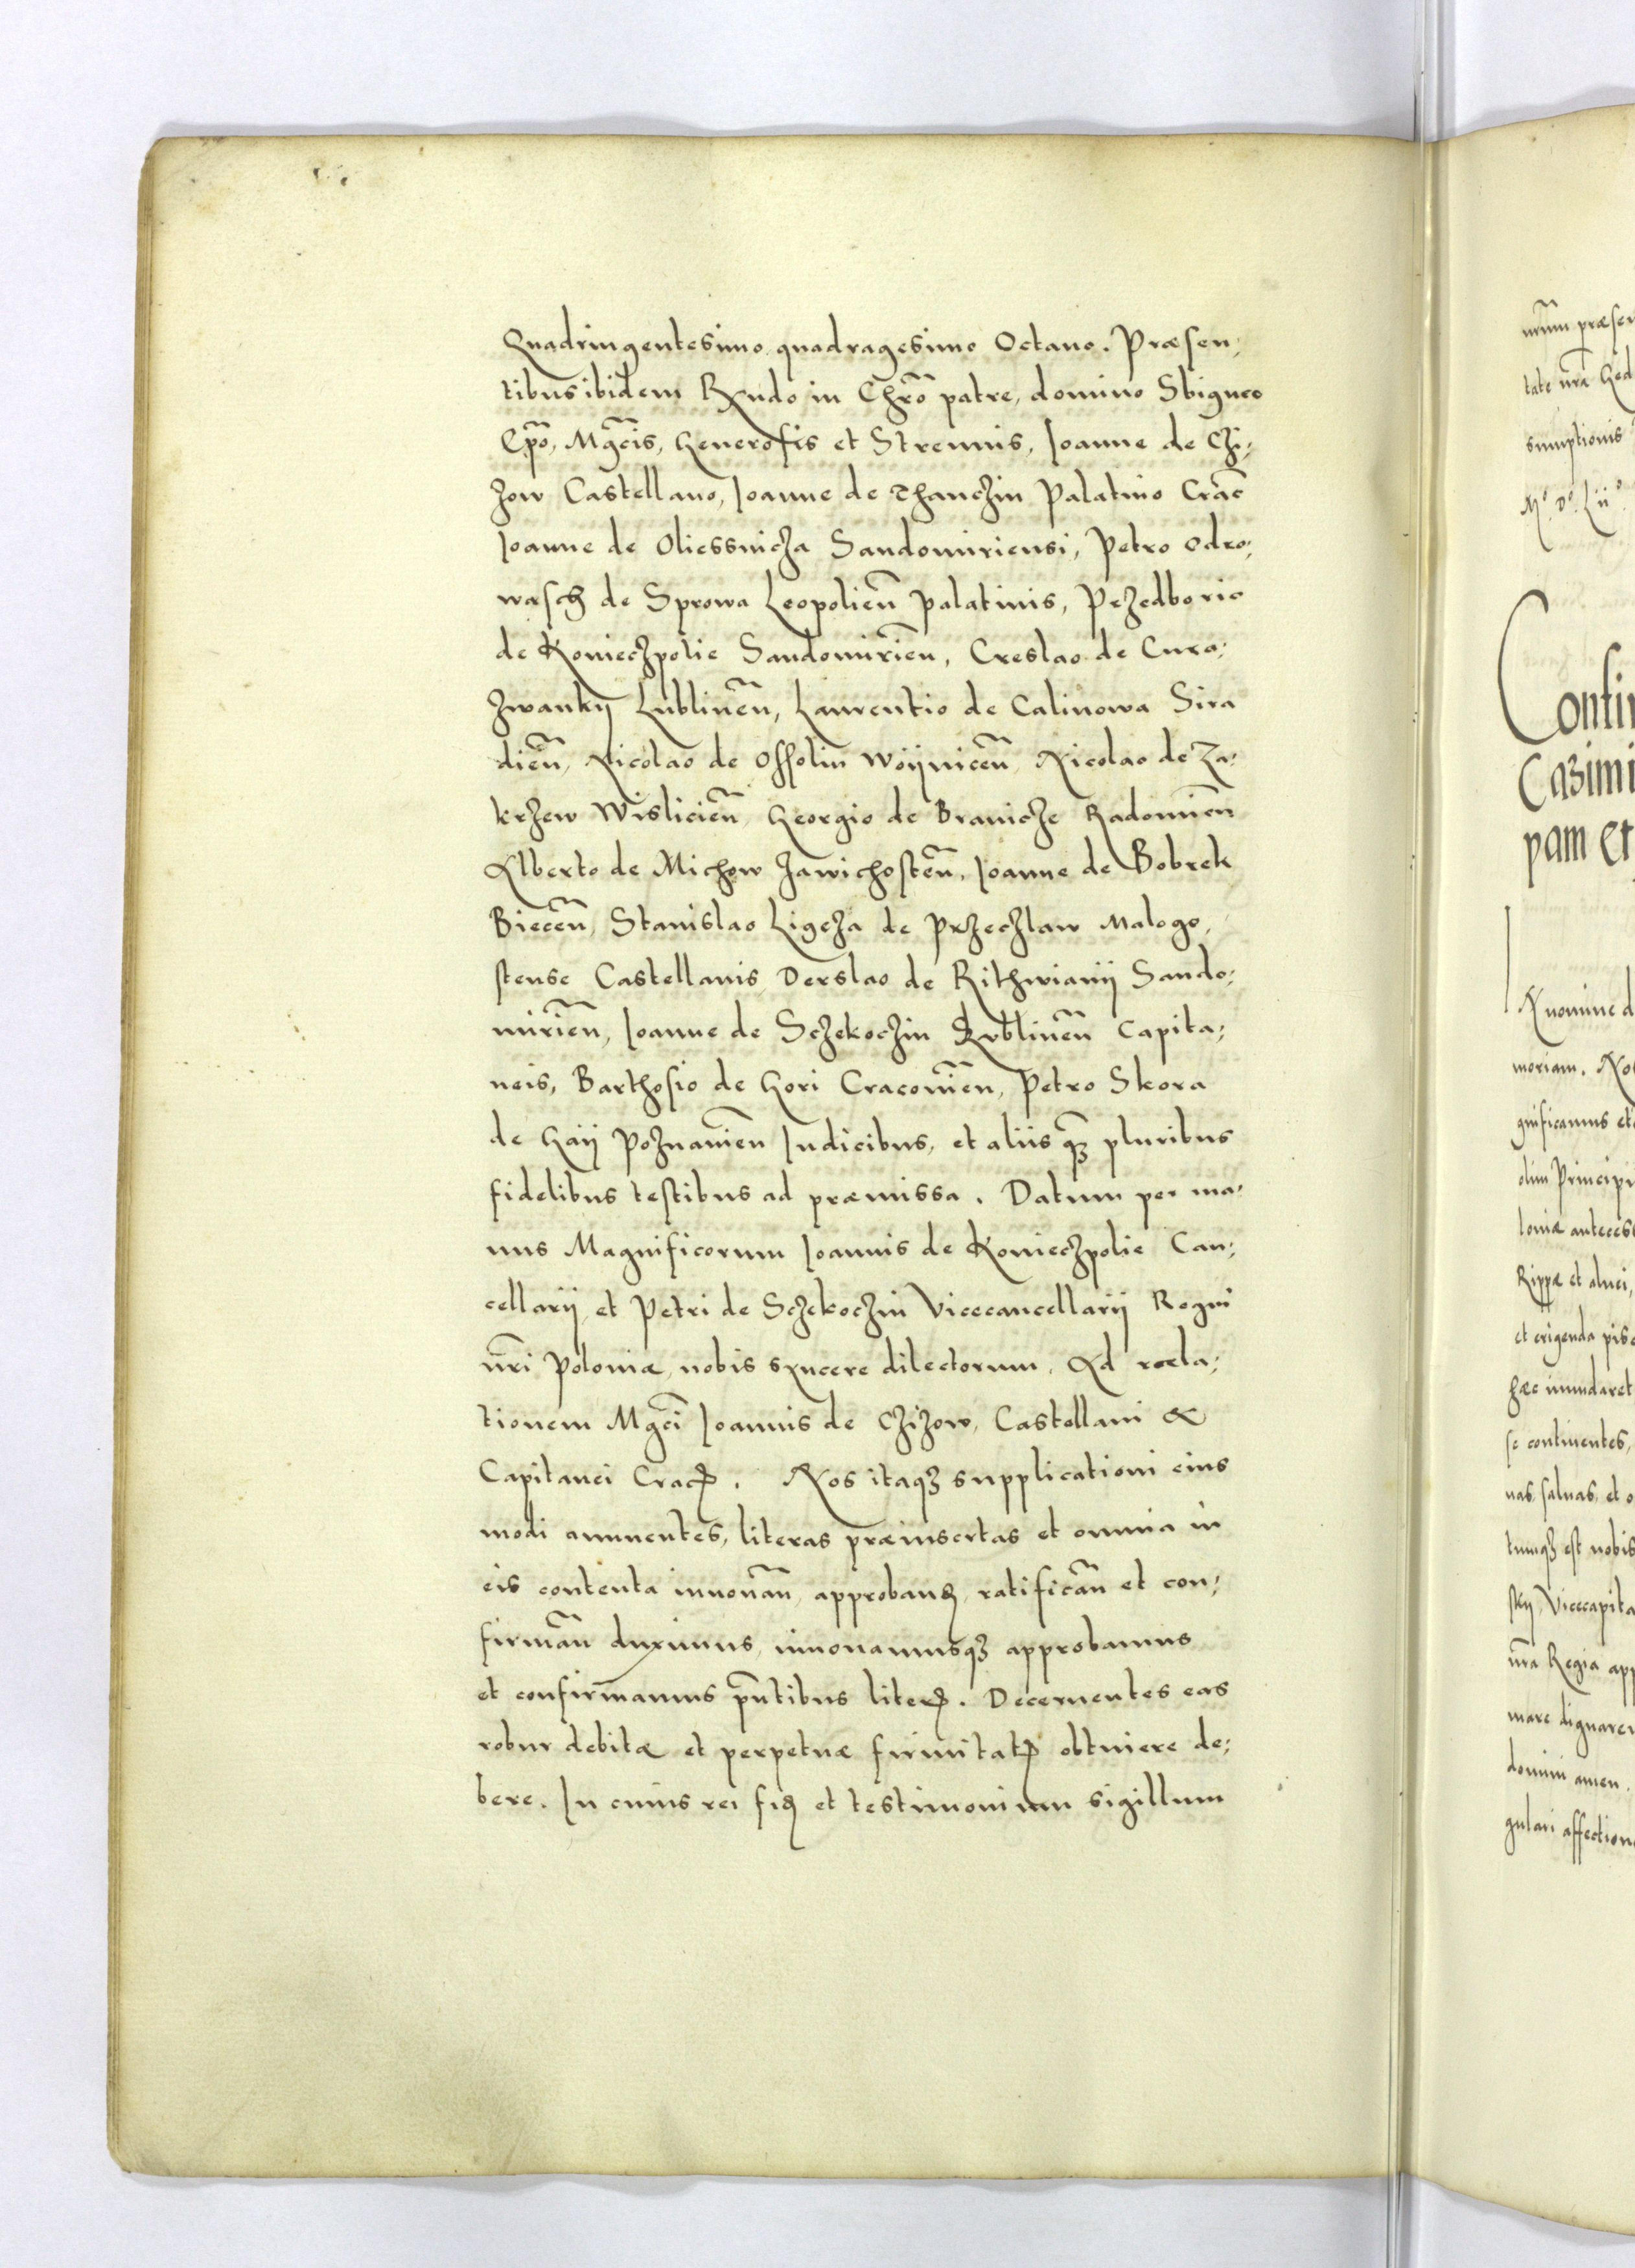 Quadringentesimo quadragesimo Octauo. Præsen,
tibus ibidem Rxndo in Chr̃o patre, domino Sbigneo
Ep̃o, Mg̃cis, Generosis et Strennis, Joanne de Czi,
zow Castellano, Joanne de Thanczin Palatino Crac̃
Joanne de Oliessnicza Sandomiriensi, Petro Odro,
wasch de Sprowa Leopolien̄ palatinis, Przedborio
de Konieczpolie Sandomirien̄, Creslao de Curo,
zwanky Lublinen̄, Laurentio de Calinowa Sira
dien̄, Nicolao de Ossolin Woijnicen̄ Nicolao de Za,
krzew Wislicien̄ Georgio de Branicze Radomien̄
Alberto de Michow Zawichosten̄, Joanne de Bobrek
Biecen̄, Stanislao Ligeza de Przeczlaw Malogo,
stense Castellanis Derslao de Rithwianij Sando,
mirien̄, Joanne de Sczekoczin Lublinen̄ Capita,
neis, Barthosio de Gori Cracouien̄, Petro Skora
de Gaij Poznanien̄ Judicibus, et aliis qꝫ pluribus
fidelibus testibus ad præmissa. Datum per ma,
nus Magnificorum Joannis de Konieczpolie Can,
cellarij, et Petri de Sczekoczin Vicecancellarij Regni
nr̃i Poloniæ, nobis syncere dilectorum. Ad rela,
tionem Mg̃ci Joannis de Czizow, Castellani &
Capitanei Cracꝭ. Nos itaqꝫ supplicationi eius
modi annuentes, literas præinsertas et omnia in
eis contenta innouan̄, approbanꝺ, ratifican̄ et con,
firman̄ duximus, innouamusqꝫ approbamus
et confirmamus pn̄tibus literꝭ. Decernentes eas
robur debitæ et perpetuæ firmitatꝭ obtinere de,
bere. In cuius rei fiꝺ et testimonium sigillum
nr̄um præsen
tate nr̄a Ged
sumptionis
M.º D.º Lii.º
Confir
Cazimi
pam et
N nomine d
moriam. Nos
gnificamus et
olim Principi
loniæ antecess
Rippæ et aluei,
et erigenda pisc
hæc inundaret
se continentes,
uas, saluas, et o
tumqꝫ est nobis
sky, Vicecapita
nr̄a Regia app
mare dignarem
domini amen.
gulari affection